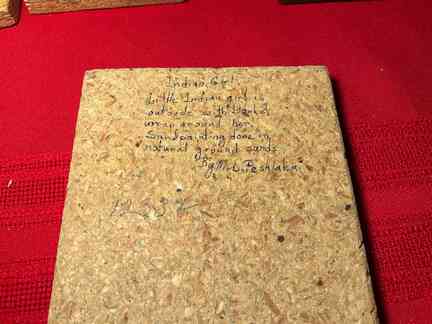 Indian Girl
Little Indian girl is
outside with blanket
wrap around her.
Sandpainting done in
natural ground sands.
By M. L. Peshlakai